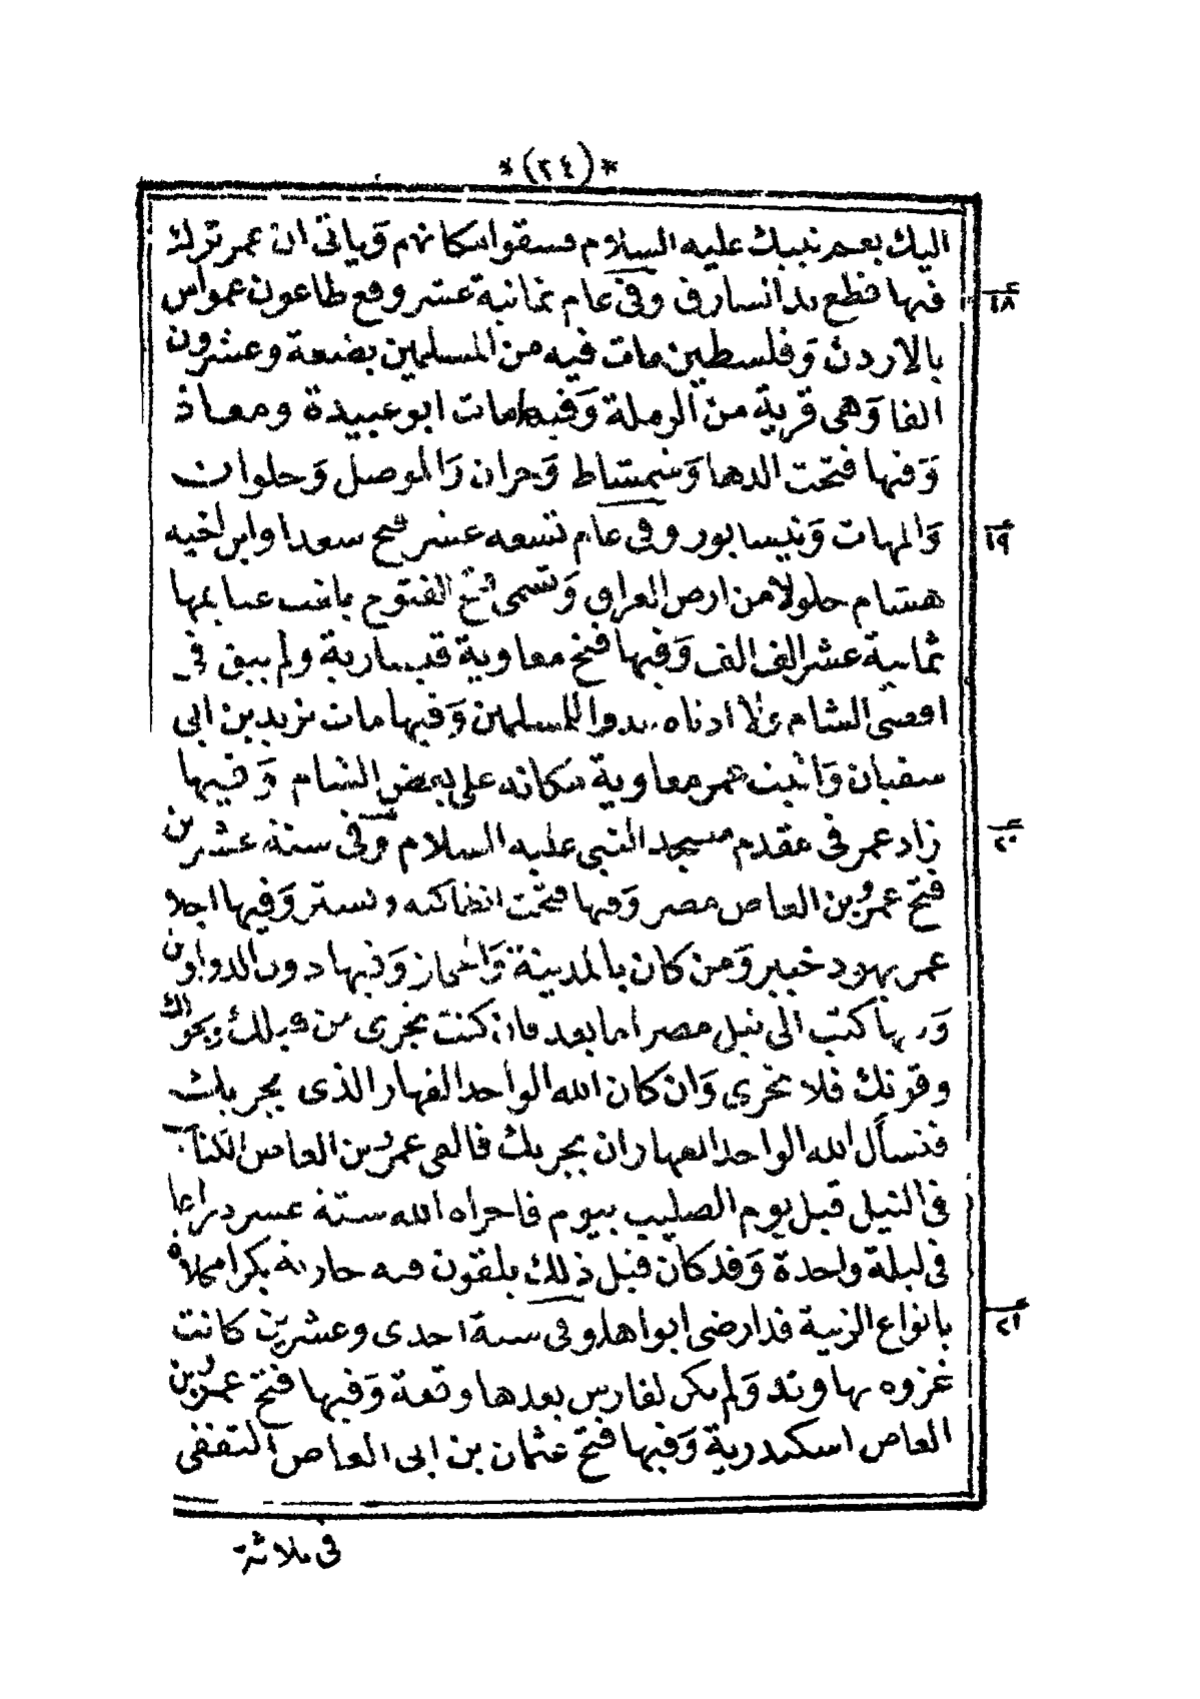 *(٢٤)*
اليك بعم نبيك عليه السلام فسقوا مكانهم وياتى ان عمر ترك
فيها قطع يد السارق وفى عام ثمانية عشر وقع طاعون عمواس
١٨
بالاردن وفلسطين مات فيه من المسلمين بضعة وعشرون
الفا وهى قرية من الرملة وفيها مات ابو عبيدة ومعاذ
وفيها فتحت الرها وشمشاط وحران والموصل وحلوان
والمهات ونيسابور وفى عام تسعه عشر فتح سعد وابن اخيه
١٩
هشام جلولا من ارض العراق وتسمى فتح الفتوح بلغت غنايمها
ثمانية عشر الف الف وفيها فتح معاوية قيسارية ولم يبق فى
اقصى الشام ولا ادناه عدوا للمسلمين وفيها مات يزيد بن ابى
سفيان واثبت عمر معاوية مكانه على بعض الشام وفيها
زاد عمر فى مقدم مسجد النبى عليه السلام وفى سنة عشرين
٢٠
فتح عمرو بن العاص مصر وفيها فتحت انطاكيه وتستر وفيها اجلا
عمر يهود خيبر ومن كان بالمدينة والحجاز وفيها دون الدواوين
وربها كتب الى نيل مصر اما بعد فان كنت تجرى من قبلك وبحولك
وقوتك فلا تجرى وان كان الله الواحد القهار الذى يجريك
فنسأل الله الواحد القهار ان يجريك فالقى عمرو بن العاص الكتاب
فى النيل قبل يوم الصليب بيوم فاجراه الله ستة عشر ذراعا
فى ليلة واحدة وقد كان قبل ذلك يلقون فيه جارية بكرا محلاة
بانواع الزينة قد ارضى ابواها وفى سنة احدى وعشرين كانت
٢١
غزوه نهاوند ولم يكن لفارس بعدها وقعة وفيها فتح عمرو بن
العاص اسكندرية وفيها فتح عثمان بن ابى العاص الثقفى
فى ثلاثة